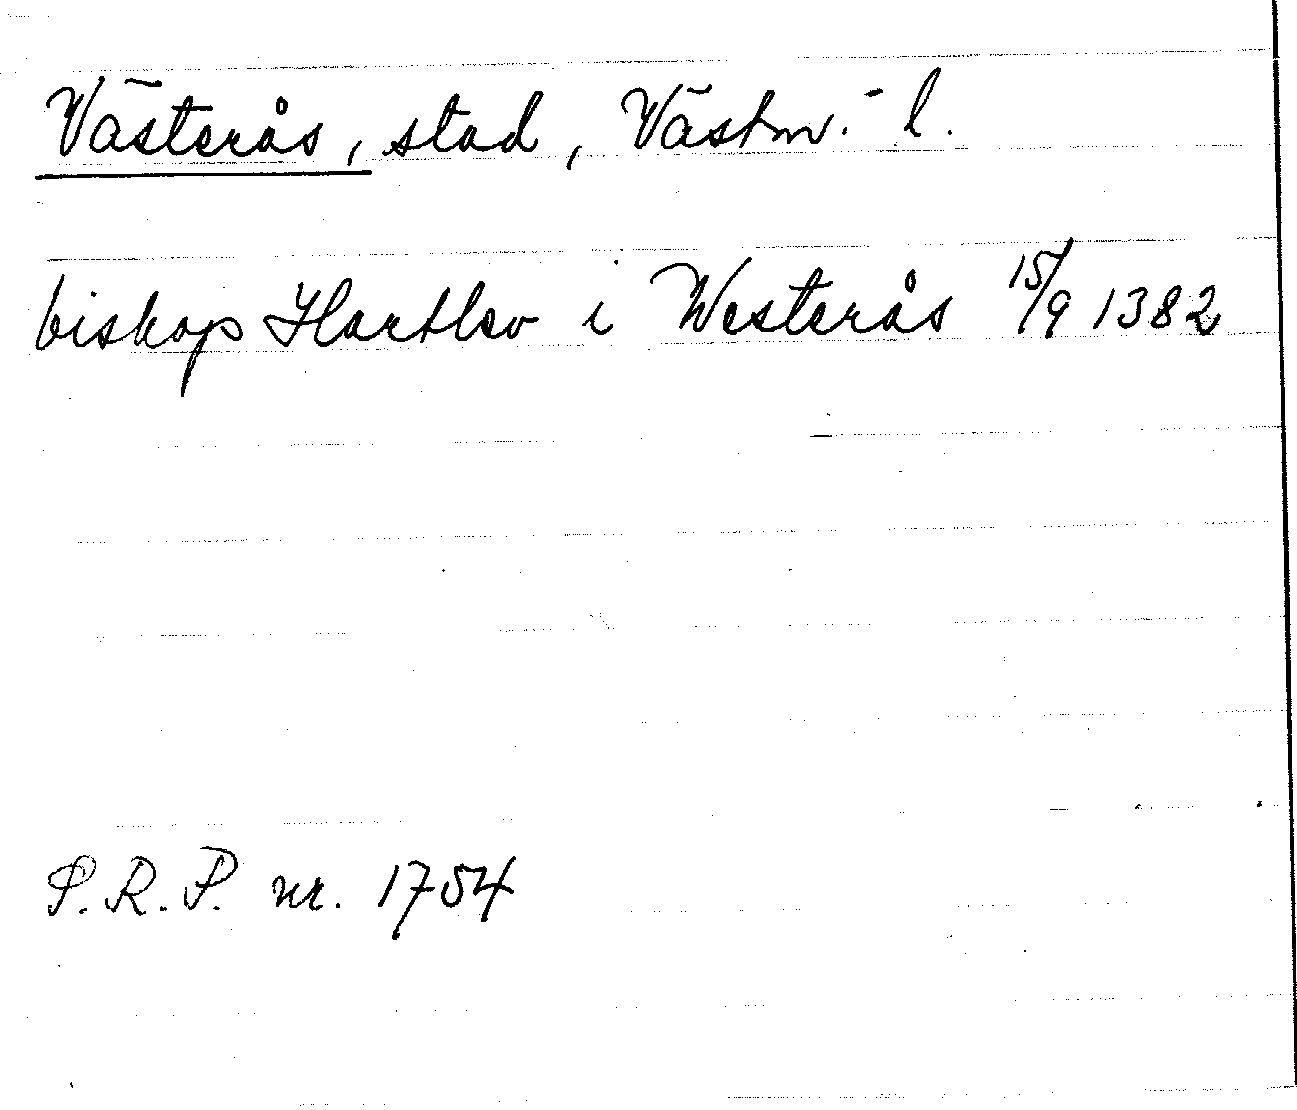 Västerås, stad, Västm. l.
biskop Hartlev i Westerås 15/9 1382
P.R.P. nr. 1754